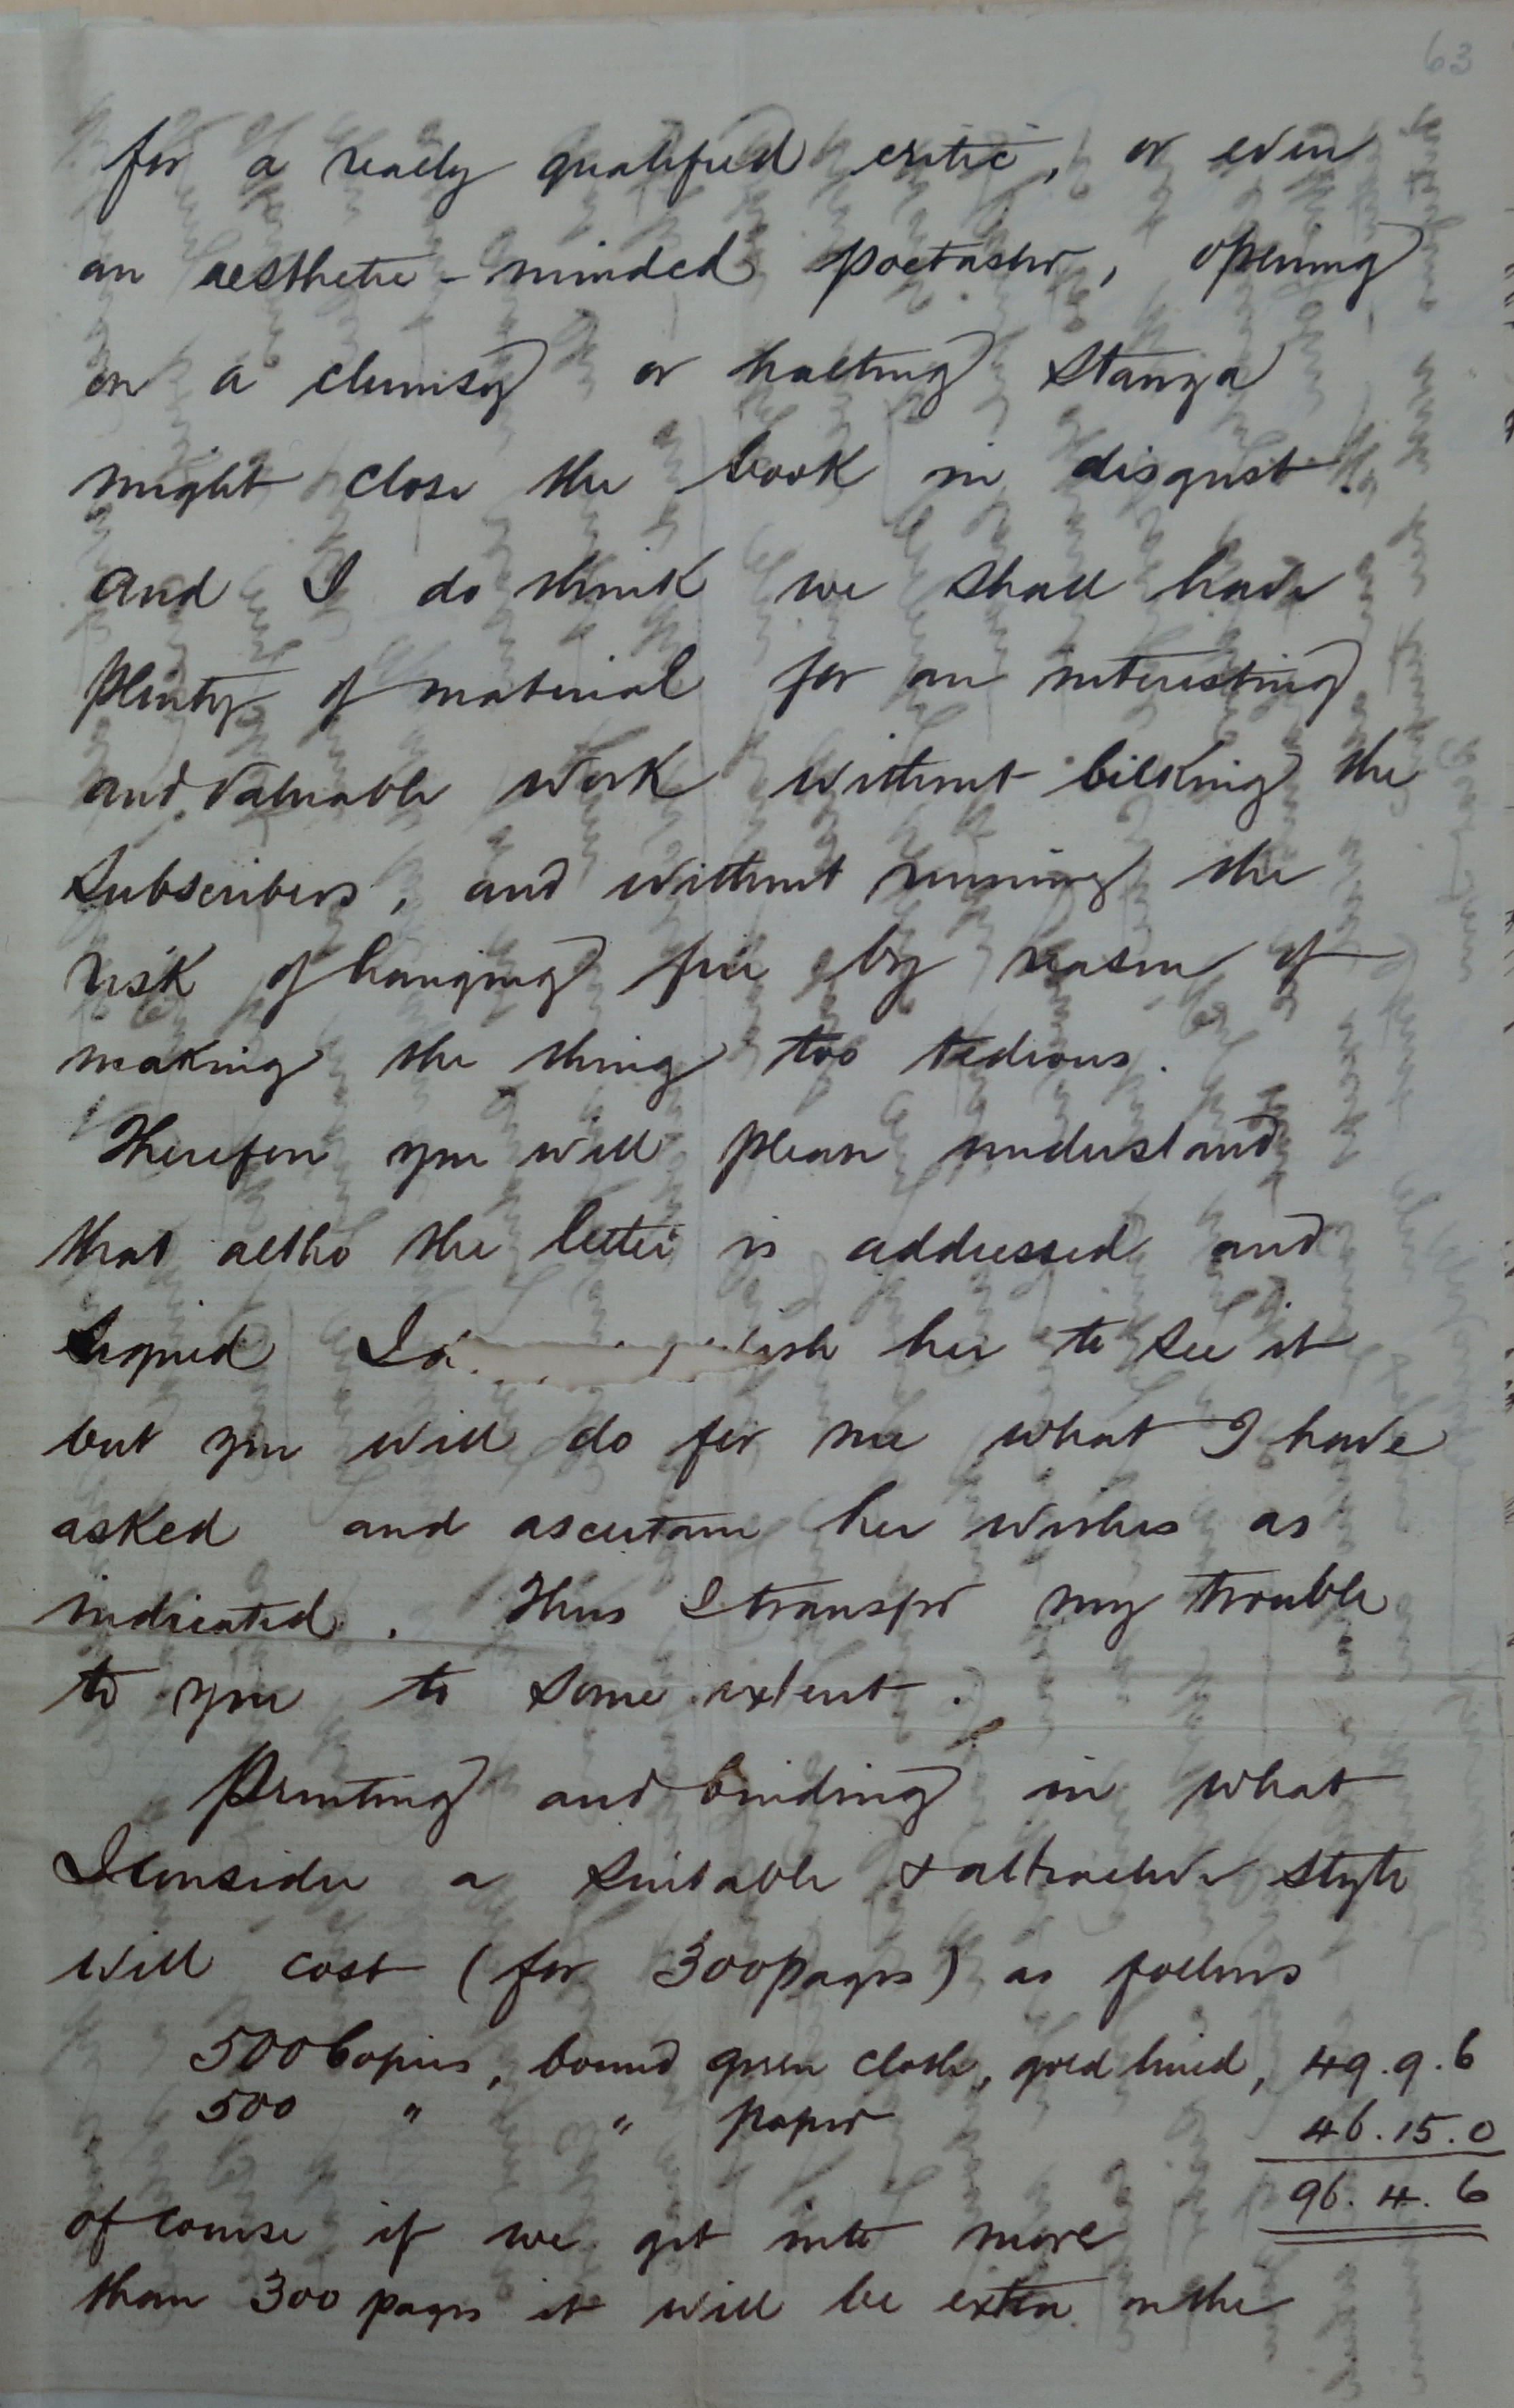 63
for a really qualified critic, or even
an aesthetic-minded poetaster, opening
on a clumsy or halting stanza
might close the book in disgust.
And I do think we shall have
plenty of material for an interesting
and valuable work without bilking the
subscribers, and without running the
risk of hanging fire by reason of
making the thing too tedious.
Therefore you will please understand
that altho the letter is addressed and
signed I her to see it
but you will do for me what I have
asked and ascertain her wishes as
indicated. Thus I transfer my trouble
to you to some extent.
Printing and binding in what
I consider a suitable & attractive style
will cost (for 300 pages) as follows
500 Copies, bound green cloth, gold lined, 49.9.6
500 " " paper 46.15.0
96.4.6
of course if we get into more
than 300 pages it will be extra on the